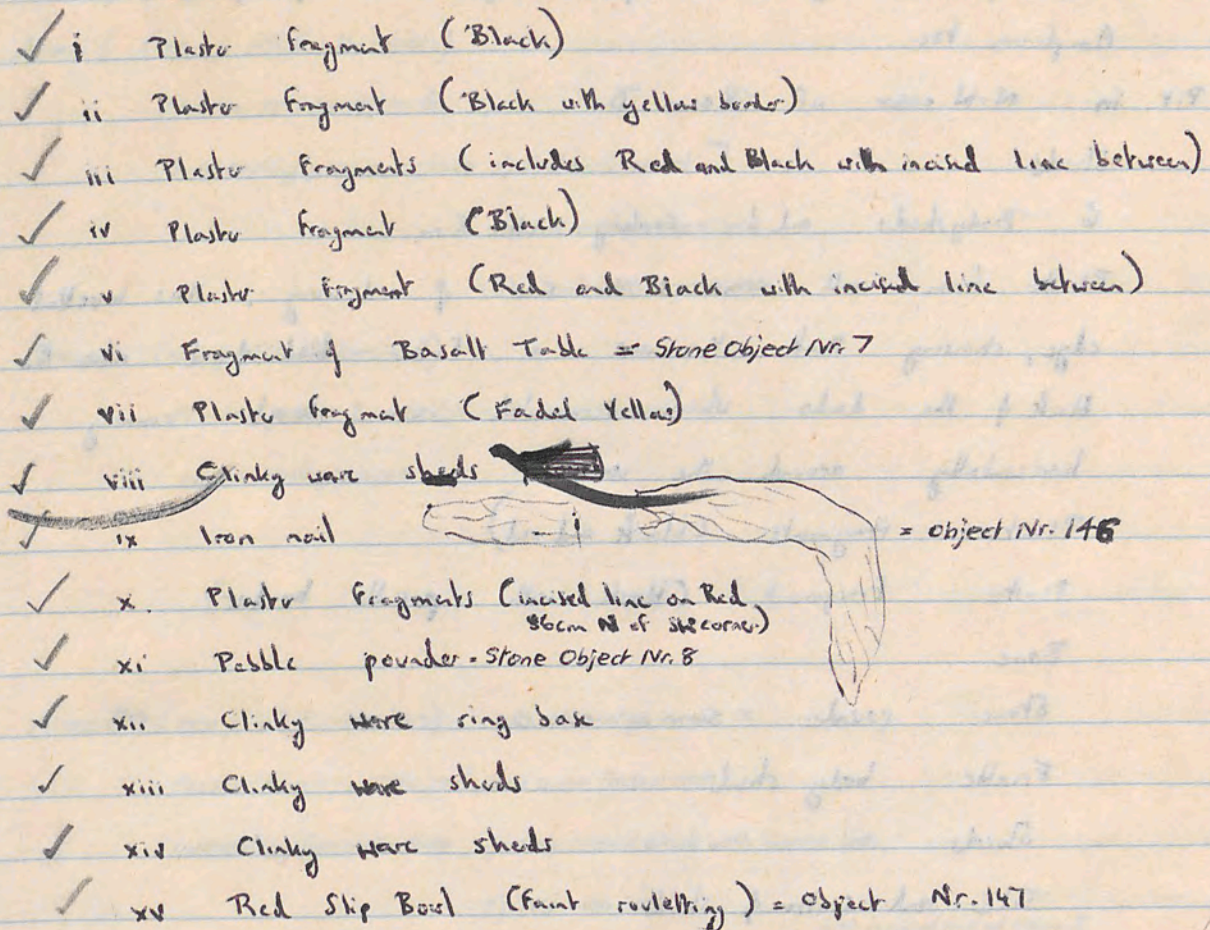 ✓ i Plaster fragment (Black)
✓ ii Plaster fragment (Black with yellow border)
✓ iii Plaster fragments (includes Red and Black with incised line between)
✓ iv Plaster fragment (Black)
✓ v Plaster fragment (Red and Black with incised line between)
✓ vi Fragment of Basalt Table = Stone Object Nr. 7
✓ vii Plaster fragment (Faded Yellow)
✓ viii Clinky ware sherds
✓ ix Iron nail = Object Nr. 146
✓ x. Plaster fragments (incised line on Red,
36cm N of SW corner)
✓ xi Pebble pounder = Stone Object Nr. 8
✓ xii Clinky ware ring base
✓ xiii Clinky ware sherds
✓ xiv Clinky ware sherds
✓ xv Red Slip Bowl (faint rouletting) = Object Nr. 147